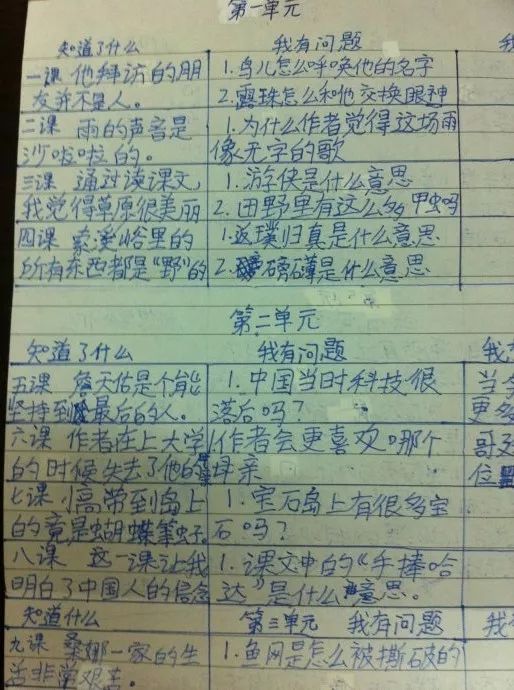 第一单元
知道了什么 我有问题 我
一课 他拜访的朋 1.鸟儿怎么呼唤他的名字
友并不是人。 2.露珠怎么和他交换眼神
二课 雨的声音是 1.为什么作者觉得这场雨
沙啦啦的。 像无字的歌
三课 通过读课文, 1.游侠是什么意思
我觉得草原很美丽 2.田野里有这么多甲虫吗
四课 索溪峪里的 1.返璞归真是什么意思
所有东西都是"野"的 2.磅礴是什么意思
第二单元
知道了什么 我有问题 我
五课 詹天佑是个能 1.中国当时科技很 当
坚持到最后的人。 落后吗? 更多
六课 作者在上大学 1作者会更喜欢哪个
的时候失去了他的 母亲 位
七课 小高带到岛上 1.宝石岛上有很多宝
的竟是蝴蝶笔虫子. 石吗?
八课 这一课让我 1.课文中的"手捧哈
明白了中国人的信念 达"是什么意思。
知道什么 第三单元 我有问题 我
九课 桑娜一家的生 1.鱼网是怎么被撕破的
活非常艰苦。